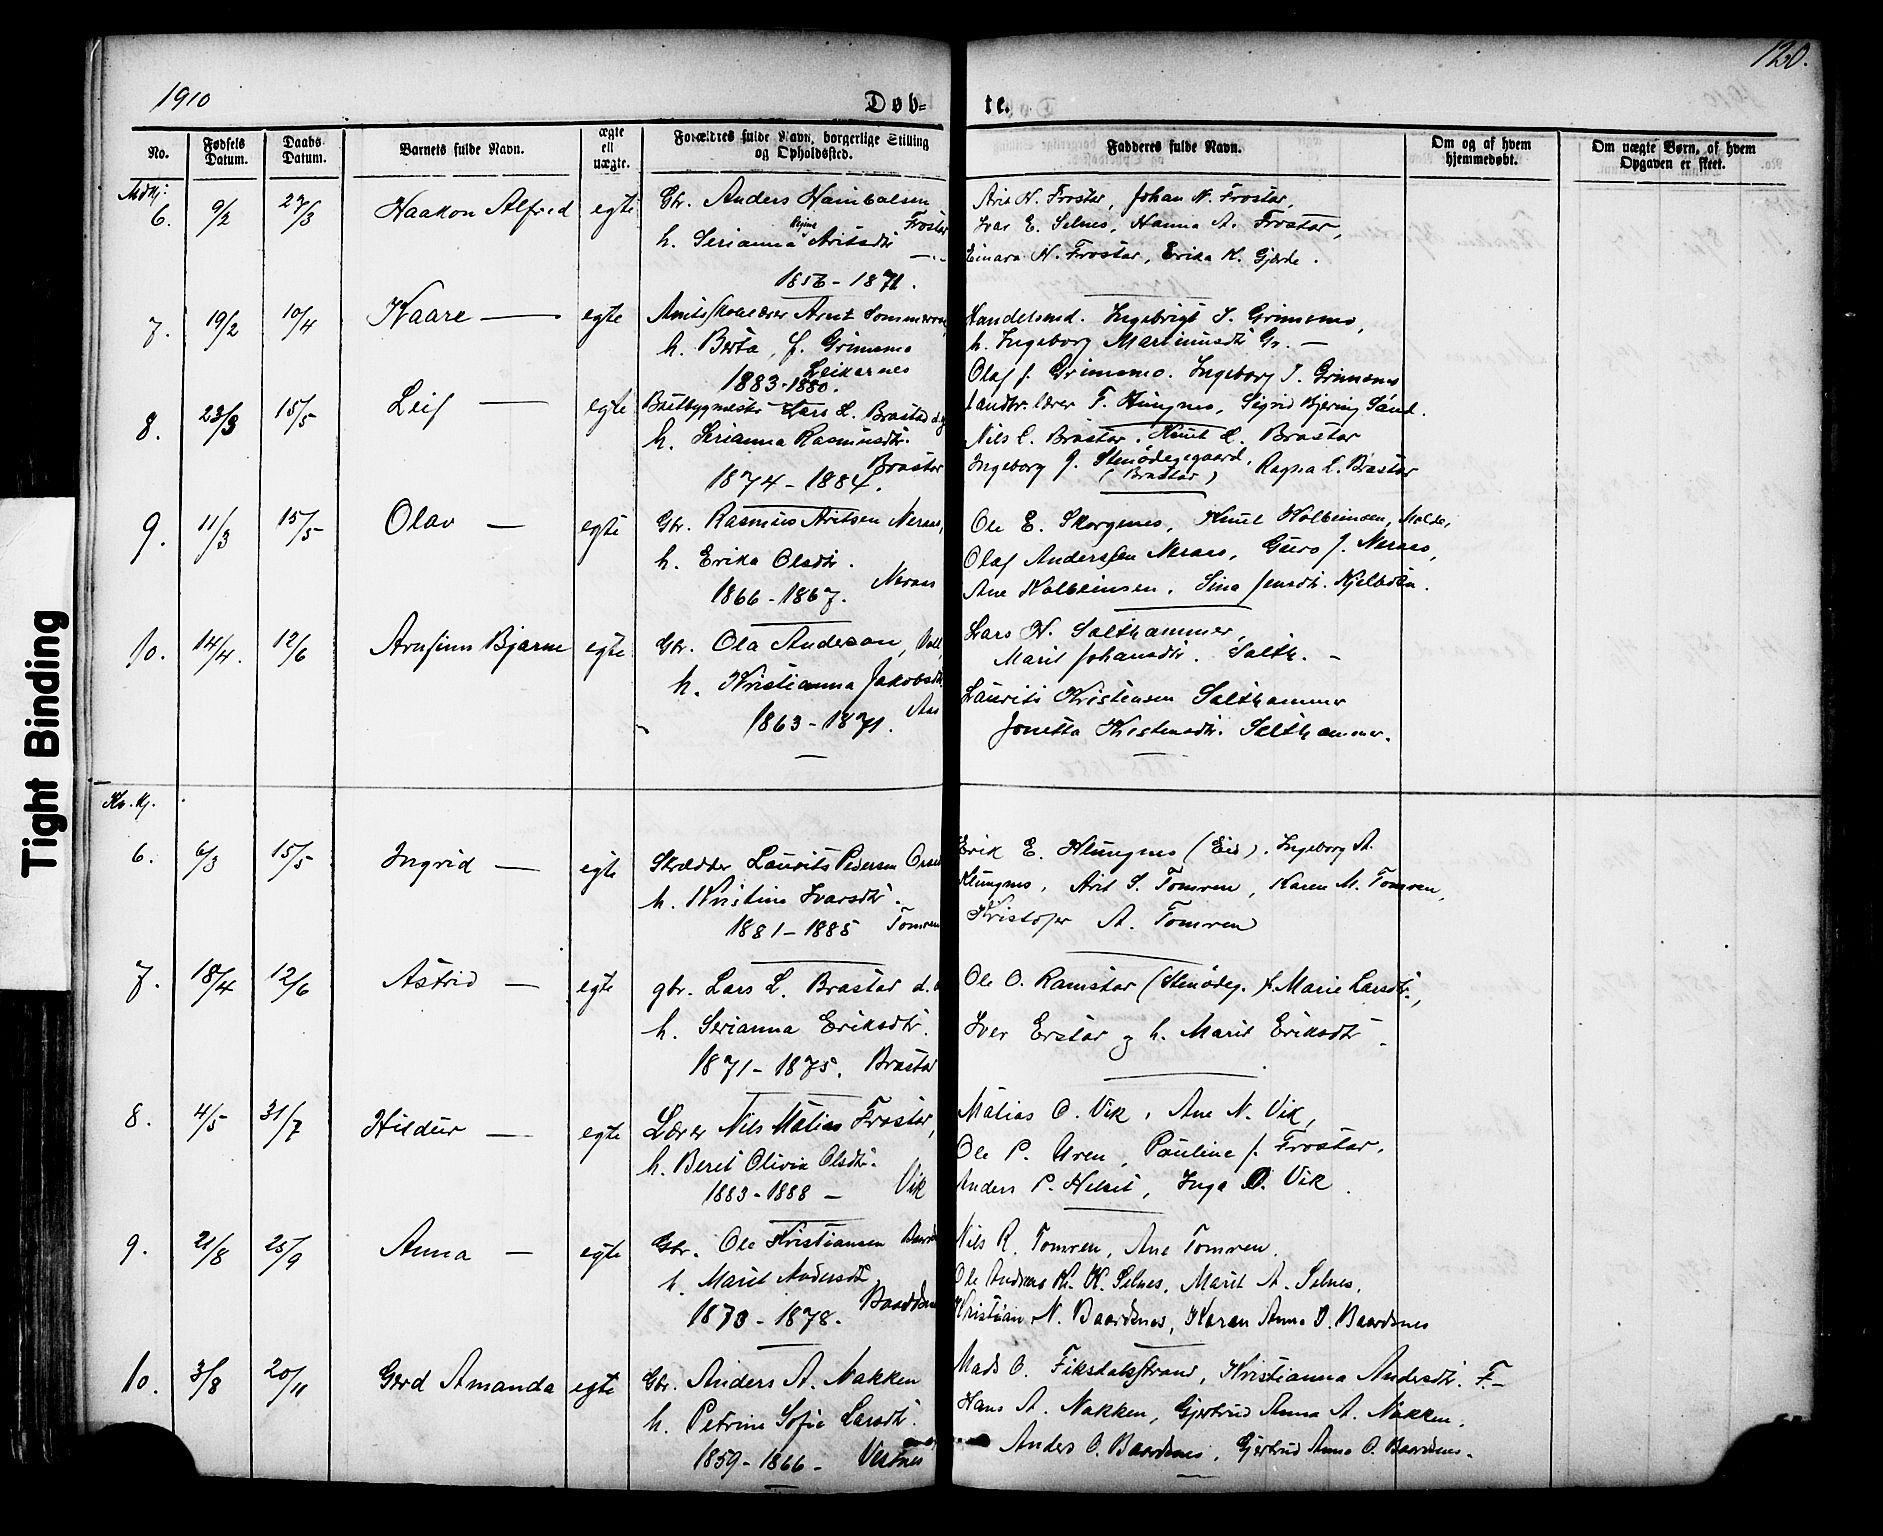 120.
1910
Døb-te.
No. Fødsels Datum. Daabs Datum. Barnets fulde Navn. ægte ell uægte. Forældres fulde Navn, borgerlige Stilling og Opholdssted. Fadderes fulde Navn. Om og af hvem hjemmedøbt. Om uægte Børn, af hvem Opgaven er skeet.
6. 9/2 27/3 Haakon Alfred egte Gbr. Anders Frostar
h. Serianna Aritsdtr
1856 - 1871.
Arit N. Frostar, Johan N. Frostar,
Ivar E. Selnes, Hanna A. Frostar,
Einara N. Frostar, Erika K. Gjerde.
7. 19/2 10/4 Kaare — egte Arnt
h. Berta, f. Grimsmo
Leikarnes
1883-1880.
Handelsmd. Ingebrigt I. Grimsmo,
h. Ingeborg Marthinusdtr Gr. —
Olaf J. Grimsmo. Ingeborg I. Grimsmo
8. 23/3 15/5 Leif — egte Baatbygmester Lars L. Brastad
h. Serianna Rasmusdtr.
1874 - 1884. Brastar
Landbr. lærer T. Klungnes, Sigrid Bjering Sand.
Nils L. Brastar. Knut L. Brastar
Ingeborg J. Stenødegaard, Ragna L. Brastar
(Brastar)
9. 11/3 15/5 Olav — egte Gbr. Rasmus Aritsen Neraas,
h. Erika Olsdtr.
1866 - 1867. Neraas
Ole E. Skorgenes, Knut Kolbeinsen, Molde,
Olaf Anderssen Neraas, Guro J. Neraas,
Ane Kolbeinsen, Sina Jensdtr. Kjelbotn.
10. 14/4. 12/6 Arnfinn Bjarne egte Gbr. Ola Anderson,
h. Kristianna Jakobsdtr
1863 - 1871. Aas
Lars N. Salthammer,
Marit Johansdtr. Salth. —
Laurits Kristensen Salthammer
Jonetta Kristensdtr. Salthammer.
Kv. Kj.
6. 6/3 15/5 Ingrid — egte Skrædder Laurits Pedersen
h. Kristine Ivarsdtr.
1881 - 1885 Tomren
Erik E. Klungnes (Eid). Ingeborg A.
Klungnes, Arit S. Tomren, Karen M. Tomren,
Kristofer A. Tomren
7. 18/4 12/6 Astrid — egte gbr. Lars L. Brastar d.
h. Serianna Eriksdtr.
1871 - 1875. Brastar
Ole O. Ramstar (Stenødeg. h. Marie Larsdtr.,
Iver Erstar og h. Marit Eriksdtr.
8. 4/5 31/7 Hildur — egte Lærer Nils Matias Frostar,
h. Beret Olivia Olsdtr.
1883 - 1888 — Vik
Matias O. Vik, Ane N. Vik,
Ole P. Uren, Pauline J. Frostar,
Anders P. Helset, Inga O. Vik.
9. 21/8 25/9 Anna — egte Gbr. Ole Kristiansen
h. Marit Andersdtr
1873 - 1878. Baardsnes
Nils R. Tomren, Ane Tomren.
Ole Andreas K. Selnes, Marit A. Selnes,
Kristian N. Baardsnes, Karen Anna O. Baardsnes
10. 3/8 20/11 Gerd Amanda egte Gbr. Anders A. Nakken
h. Petrine Sofie Larsdtr.
1859 - 1866 — Vestnes
Mads O. Fikstalstrand, Kristianna Andersdtr. F. —
Hans A. Nakken, Gjertrud Anna A. Nakken,
Anders O. Baardsnes, Gjertrud Anna O. Baardsnes.
Tight Binding